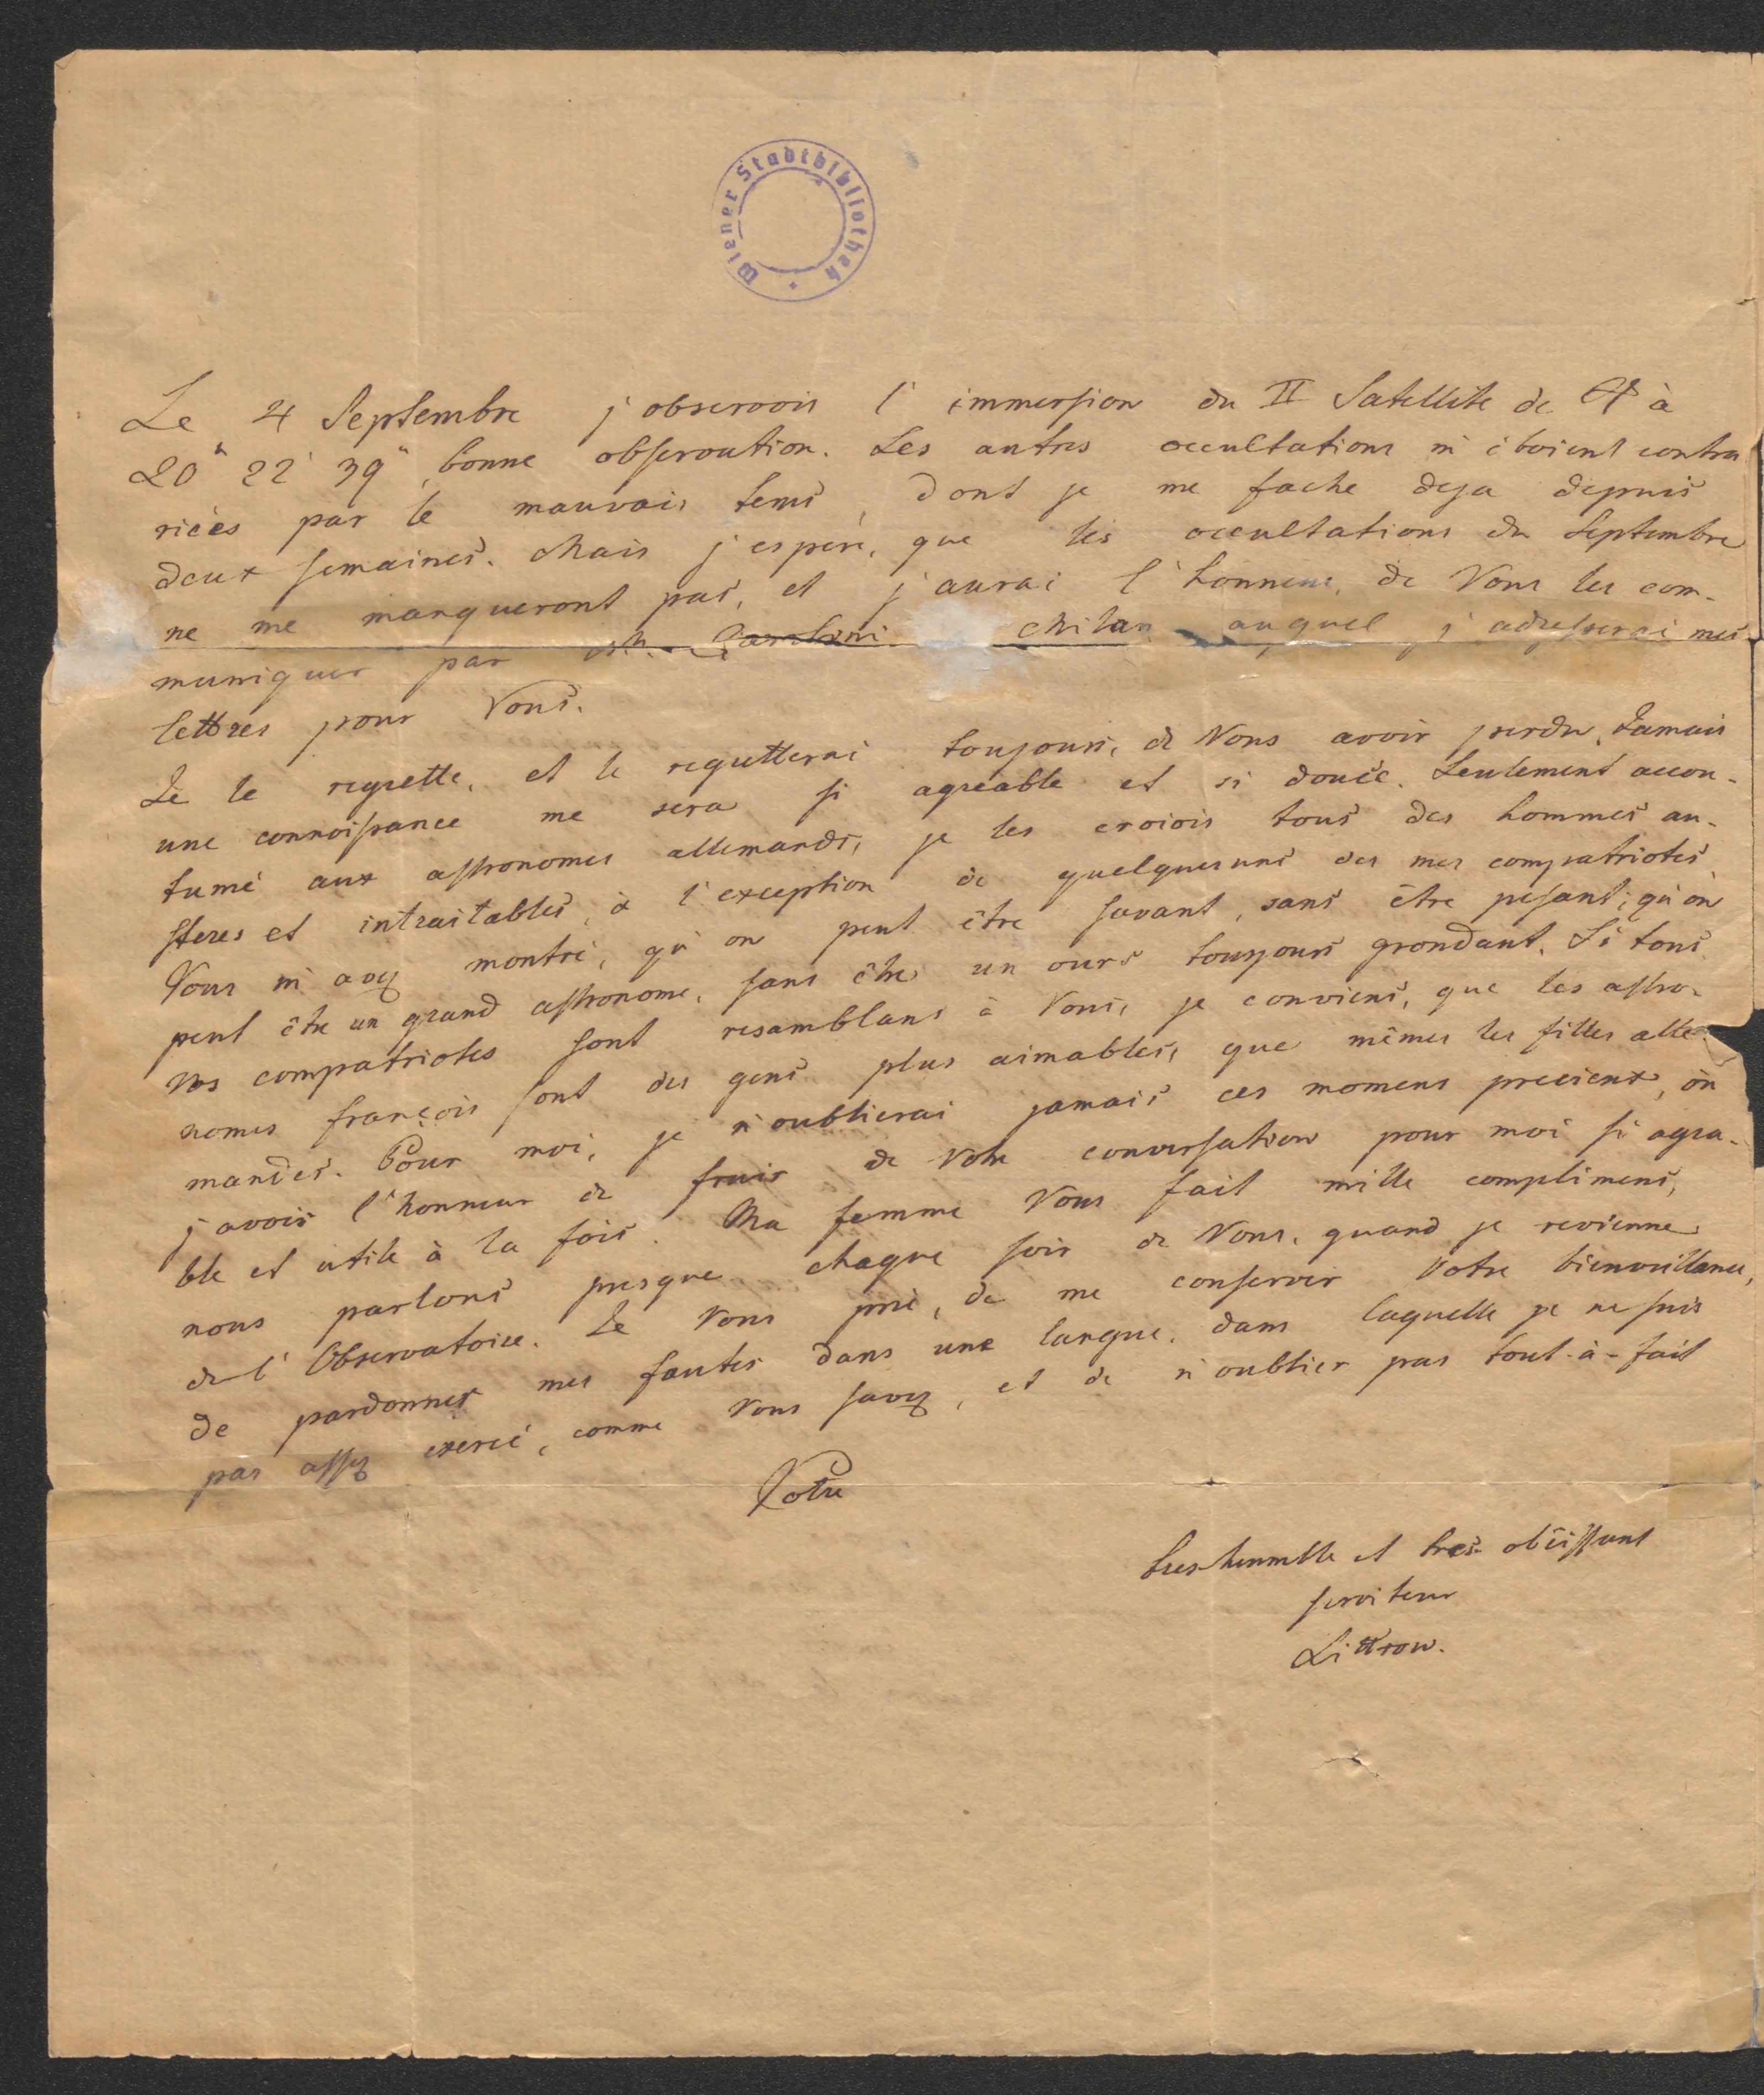 Wiener Stadtbibliothek
Le 4 Septembre j'observois l'immersion du II Satellite de ♃ à
20h 22' 39", bonne observation. Les autres occultations m'étoient contra
riées par le mauvais tems, dont je me fache deja depuis
deux semaines. Mais j'espere, que les occultations du Septembre
ne me manqueront pas, et j'aurai l'honneur, de Vous les com-
muniquer par Mr. Milan auquel j'adresserai mes
lettres pour Vous.
Je le regrette, et le regretterai toujours, de Vous avoir perdu. Jamais
une connoissance me sera si agreable et si douce. Seulement accou-
tumé aux astronomes allemands, je les croiois tous des hommes au-
steres et intraitables, à l'exception de quelquesuns des mes compatriotes.
Vous m'avez montré, qu'on peut être savant, sans être pesant; qu'on
peut être un grand astronome, sans être un ours toujours grondant. Si tous
Vos compatriotes sont resamblans à Vous, je conviens, que les astro-
nomes françois sont des gens plus aimables, que mêmes les filles alle-
mandes. Pour moi, je n'oublierai jamais ces momens precieux, où
j'avois l'honneur de fruir de Votre conversation pour moi si agrea-
ble et utile à la fois. Ma femme Vous fait mille complimens,
nous parlons presque chaque soir de Vous, quand je revienne
de l'Observatoire. Je Vous prie, de me conserver Votre bienveillance,
de pardonner mes fautes dans une langue, dans laquelle je ne suis
pas assez exercé, comme Vous savez, et de n'oublier pas tout-à-fait
Votre
tres-humble et tres-obéissant
serviteur
Littrow.